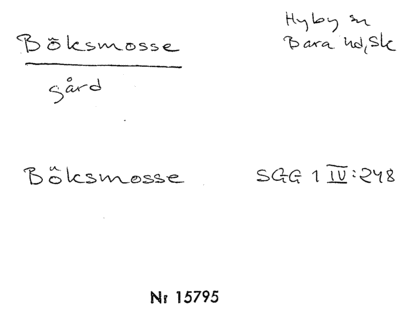 Böksmosse
Hyby sn
Bara hd, Sk
gård
Böksmosse
SGG 1 IV:248
Nr 15795